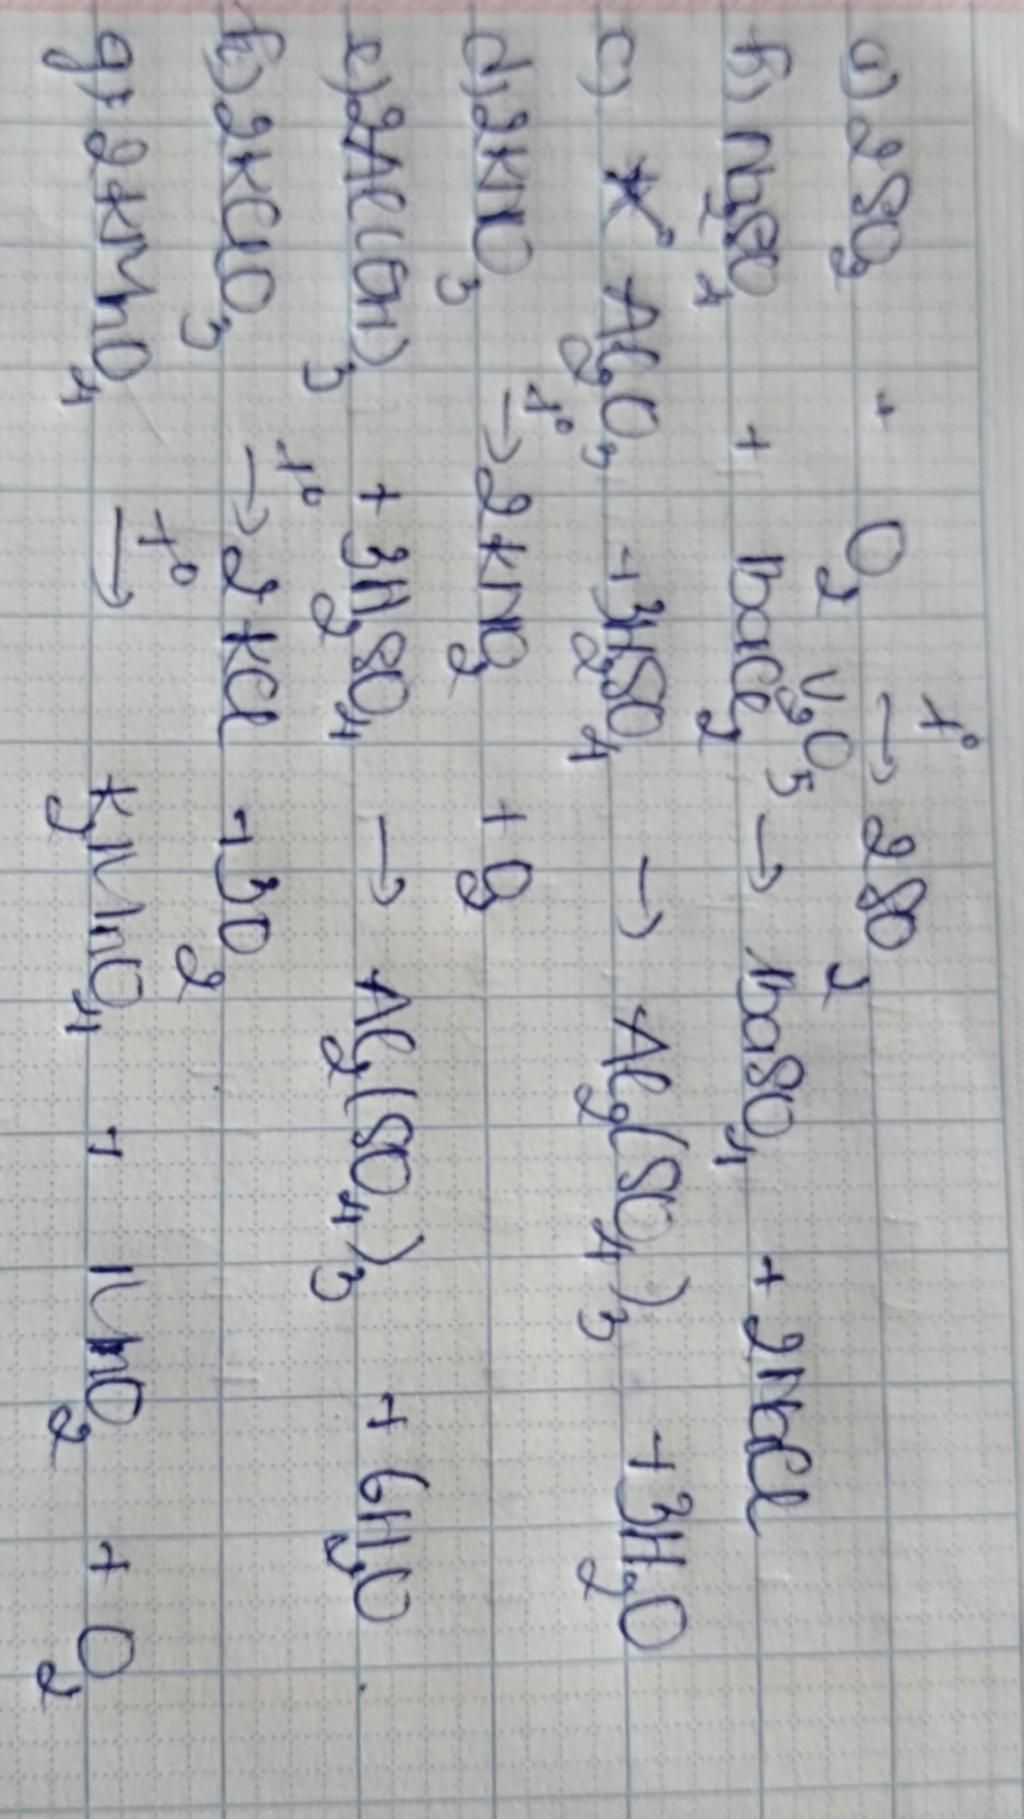 a) 2SO₂ + O₂ →(t°, V₂O₅) 2SO₃
b) Na₂SO₄ + BaCl₂ → BaSO₄ + 2NaCl
c) Al₂O₃ + 3H₂SO₄ → Al₂(SO₄)₃ + 3H₂O
d) 2KNO₃ →(t°) 2KNO₂ + O₂
e) 2Al(OH)₃ + 3H₂SO₄ → Al₂(SO₄)₃ + 6H₂O
h) 2KClO₃ →(t°) 2KCl + 3O₂
g) 2KMnO₄ →(t°) K₂MnO₄ + MnO₂ + O₂